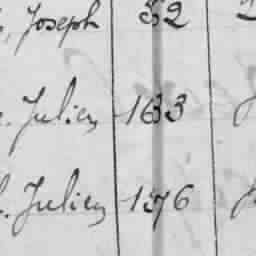 , Joseph 52
. Julien 163
. Julien 176